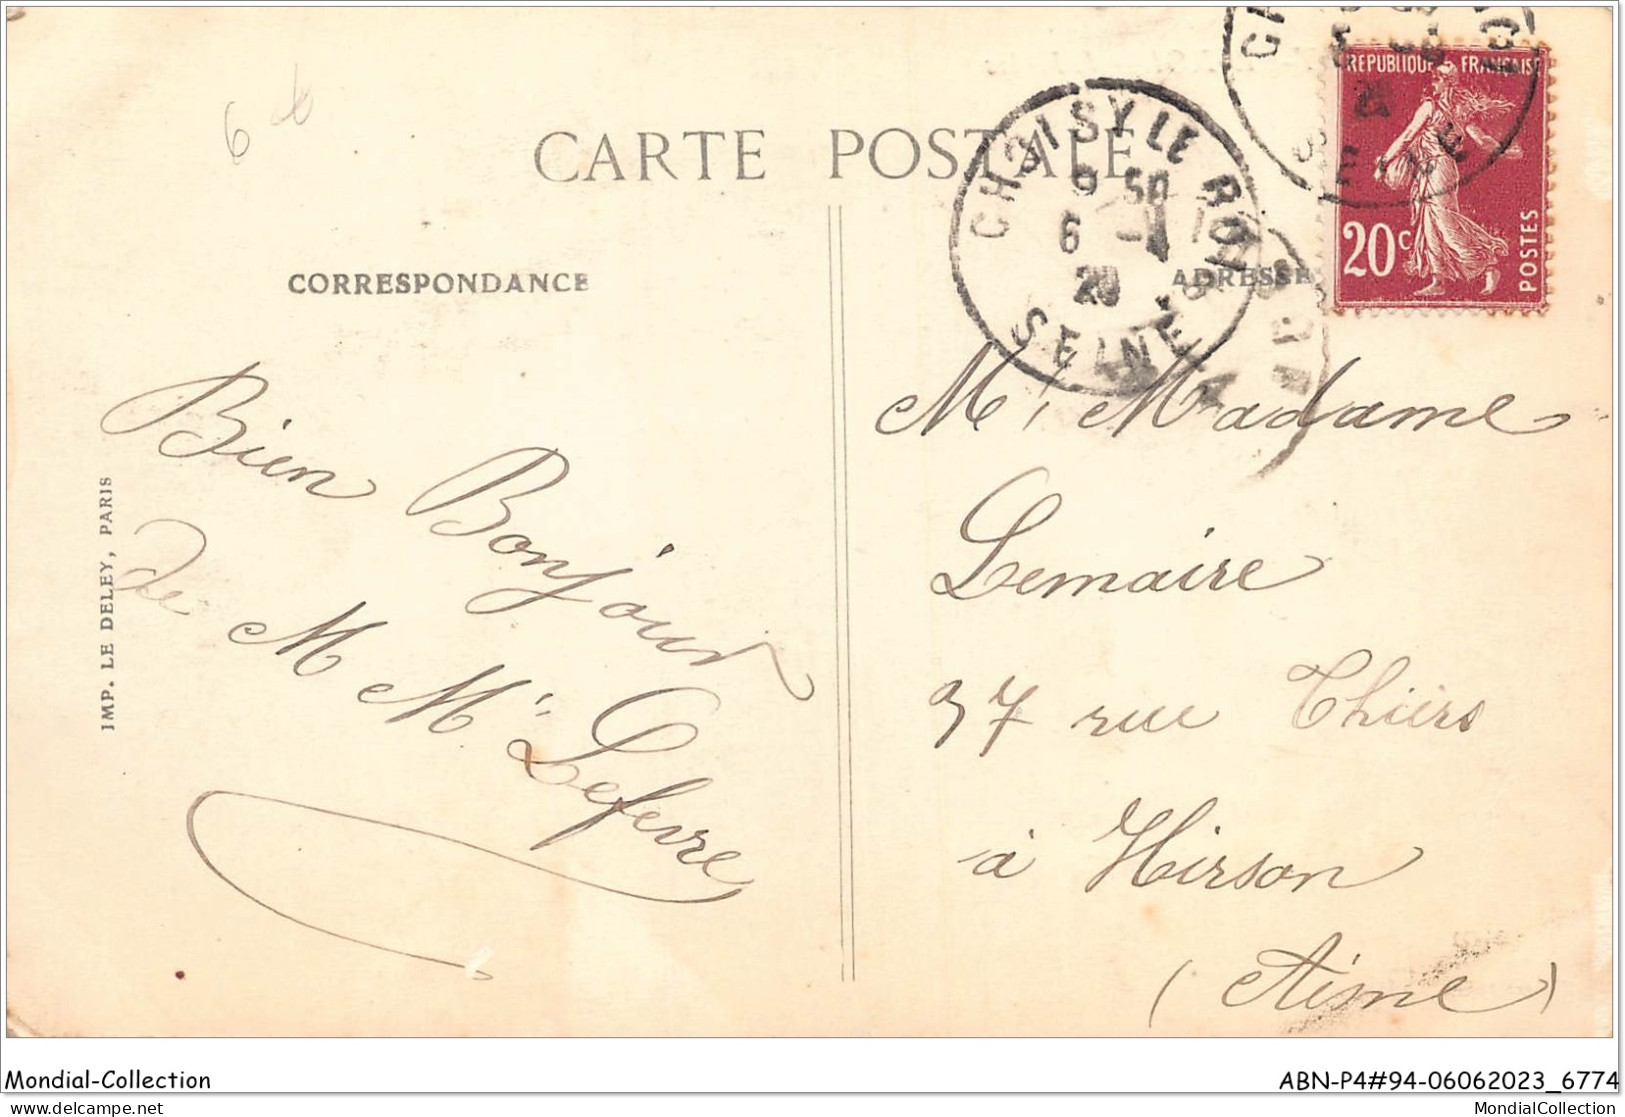 6
CARTE POSTALE
CORRESPONDANCE
ADRESSE
CHOISY LE ROI
50
6
SEINE
REPUBLIQUE FRANÇAISE
20c
POSTES
SEINE
IMP. LE DELEY, PARIS
Bien Bonjour
de M Me Lefevre
M, Madame
Lemaire
37 rue Thiers
à Hirson
(Aisne)
Mondial-Collection
ABN-P4#94-06062023_6774
delcampe.net
MondialCollection